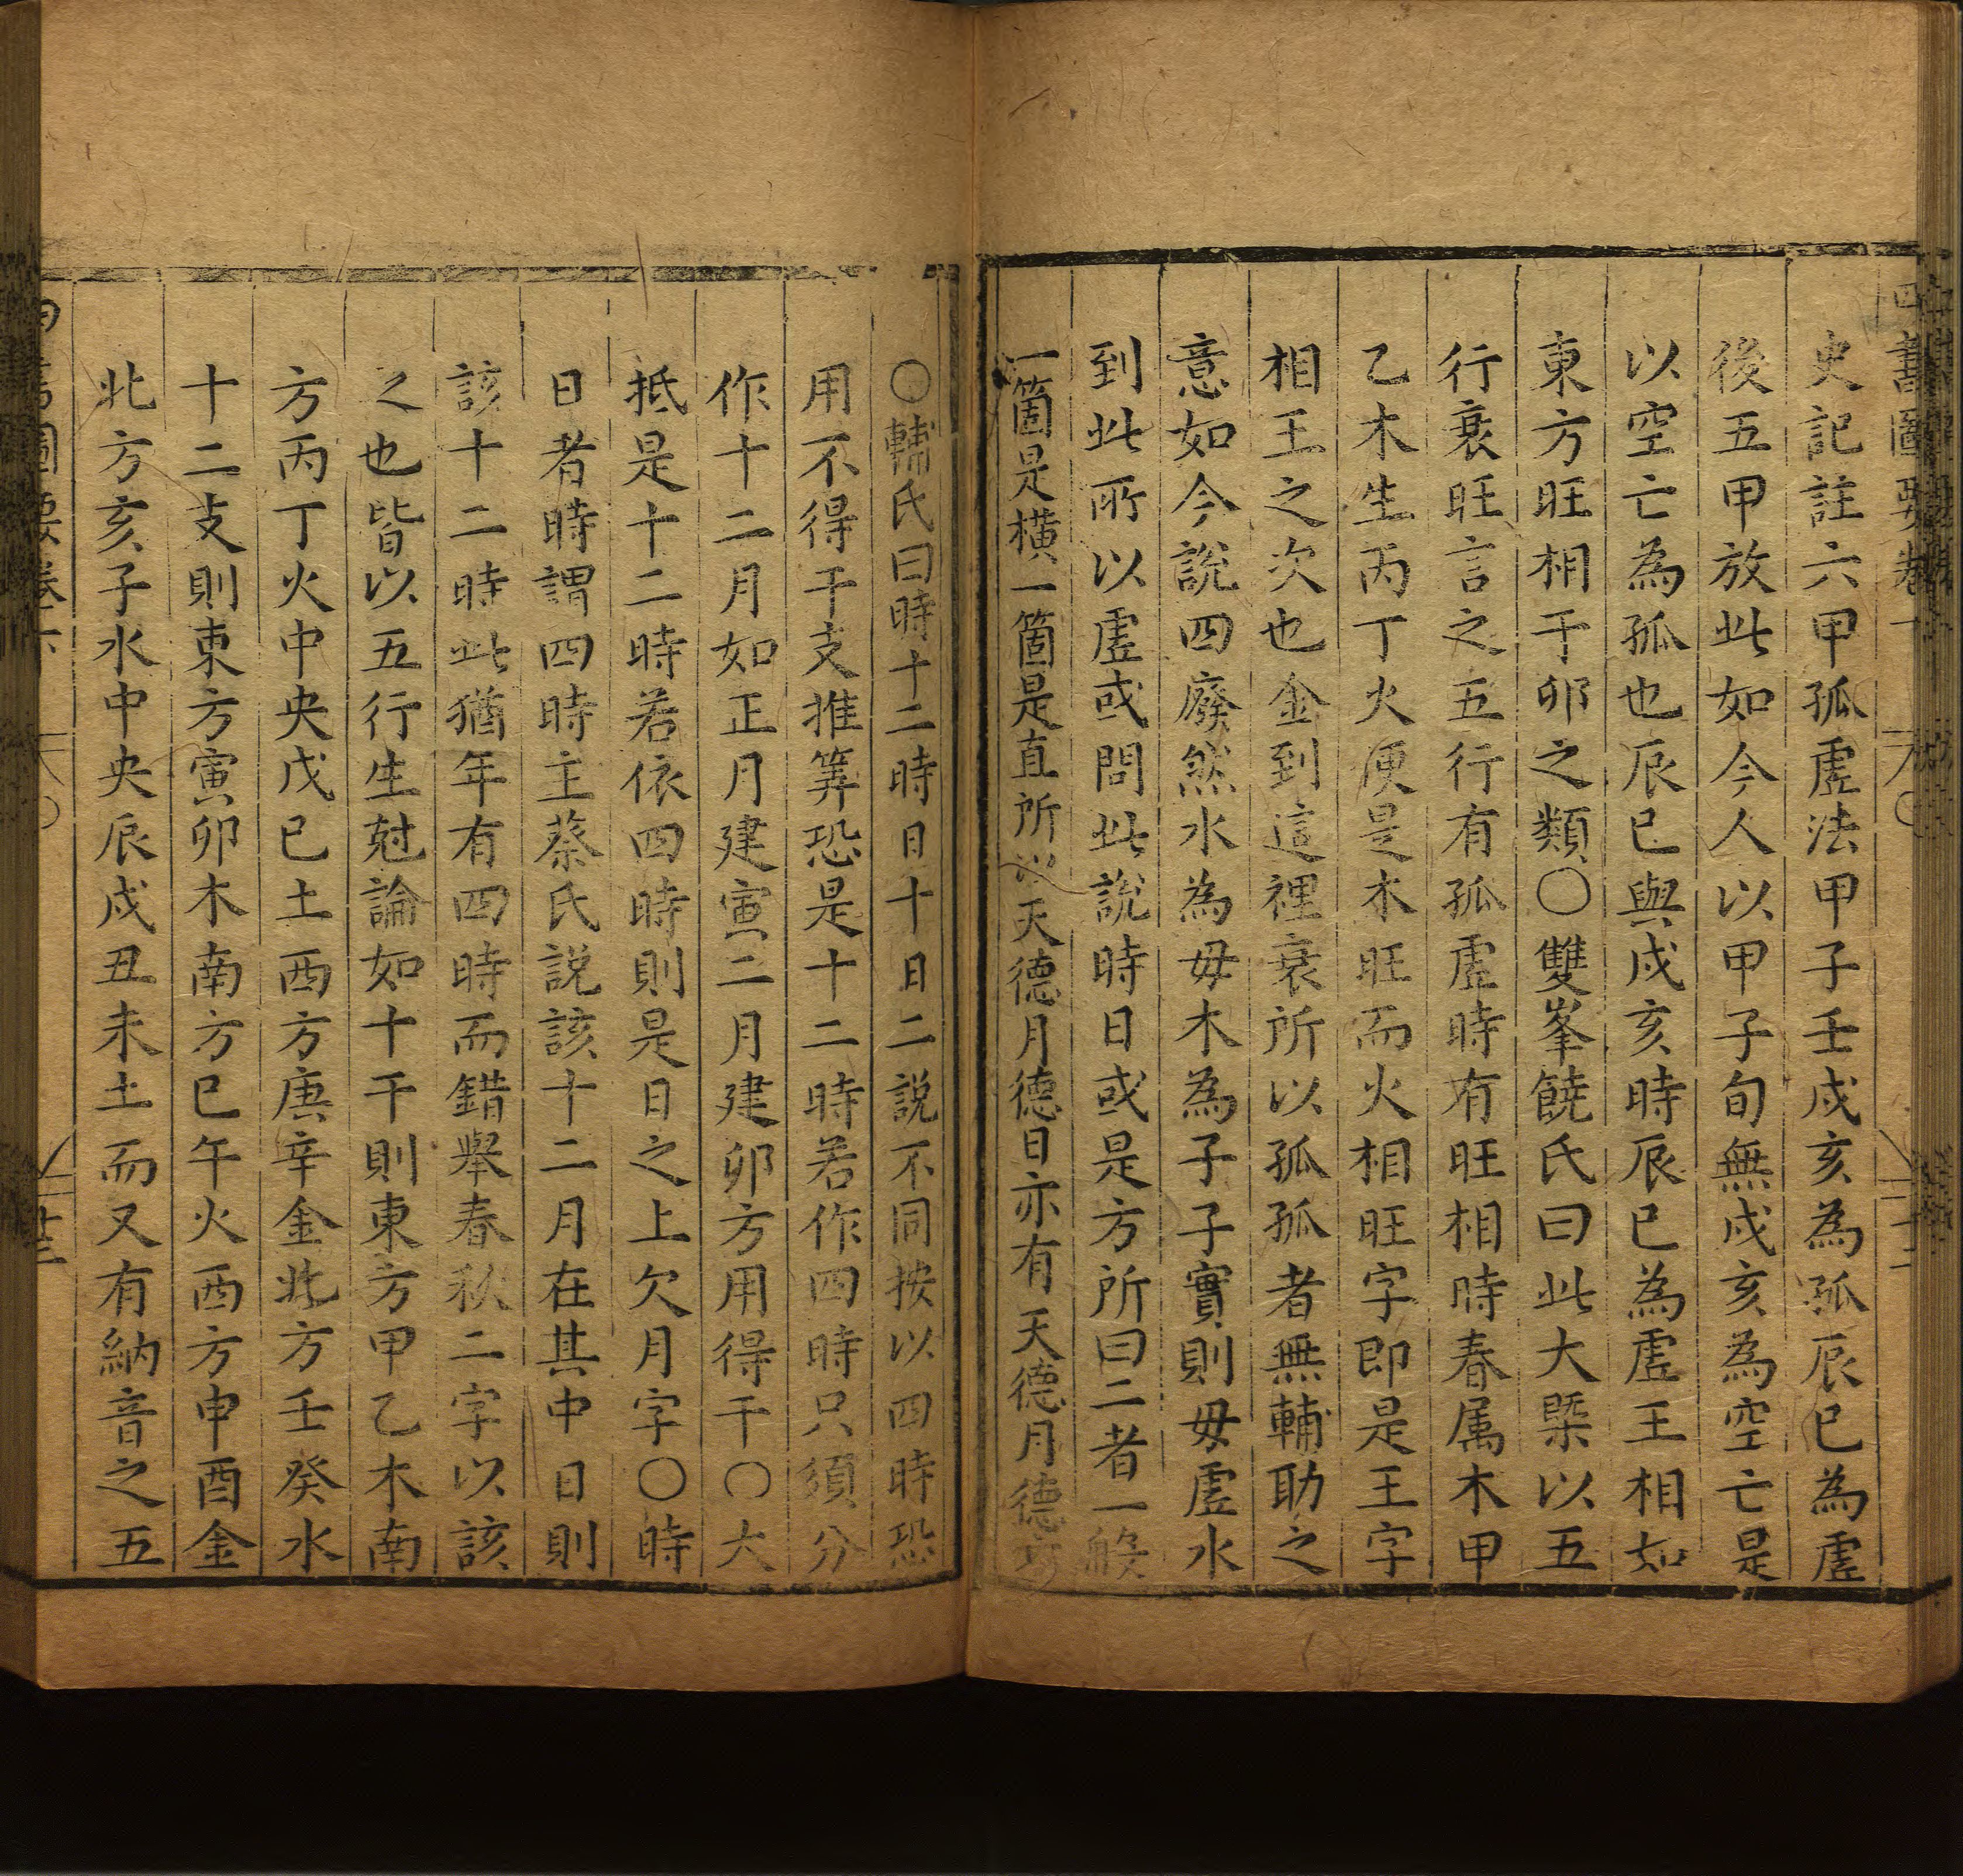 史記註六甲孤虛法甲子壬戌亥為孤辰巳為虛
後五甲放此如今人以甲子旬無戌亥為空亡是
以空亡為孤也辰巳與戌亥時辰巳為虛王相如
東方旺相于卯之類〇雙峯饒氏曰此大槩以五
行衰旺言之五行有孤虛時有旺相時春属木甲
乙木生丙丁火便是木旺而火相旺字即是王字
相王之次也金到這裡衰所以孤孤者無輔助之
意如今說四廢然水為毋木為子子實則毋虛水
到此所以虛或問此說時日或是方所曰二者一般
一箇是橫一箇是直所以天德月德日亦有天德月德方
〇輔氏曰時十二時日十日二說不同按以四時恐
用不得干支推筭恐是十二時若作四時只須分
作十二月如正月建寅二月建卯方用得干〇大
抵是十二時若依四時則是日之上欠月字〇時
日者時謂四時主蔡氏說該十二月在其中日則
該十二時此猶年有四時而錯舉春秋二字以該
之也皆以五行生尅論如十干則東方甲乙木南
方丙丁火中央戊巳土西方庚辛金北方壬癸水
十二支則東方寅卯木南方巳午火西方申酉金
北方亥子水中央辰戌丑未土而又有納音之五